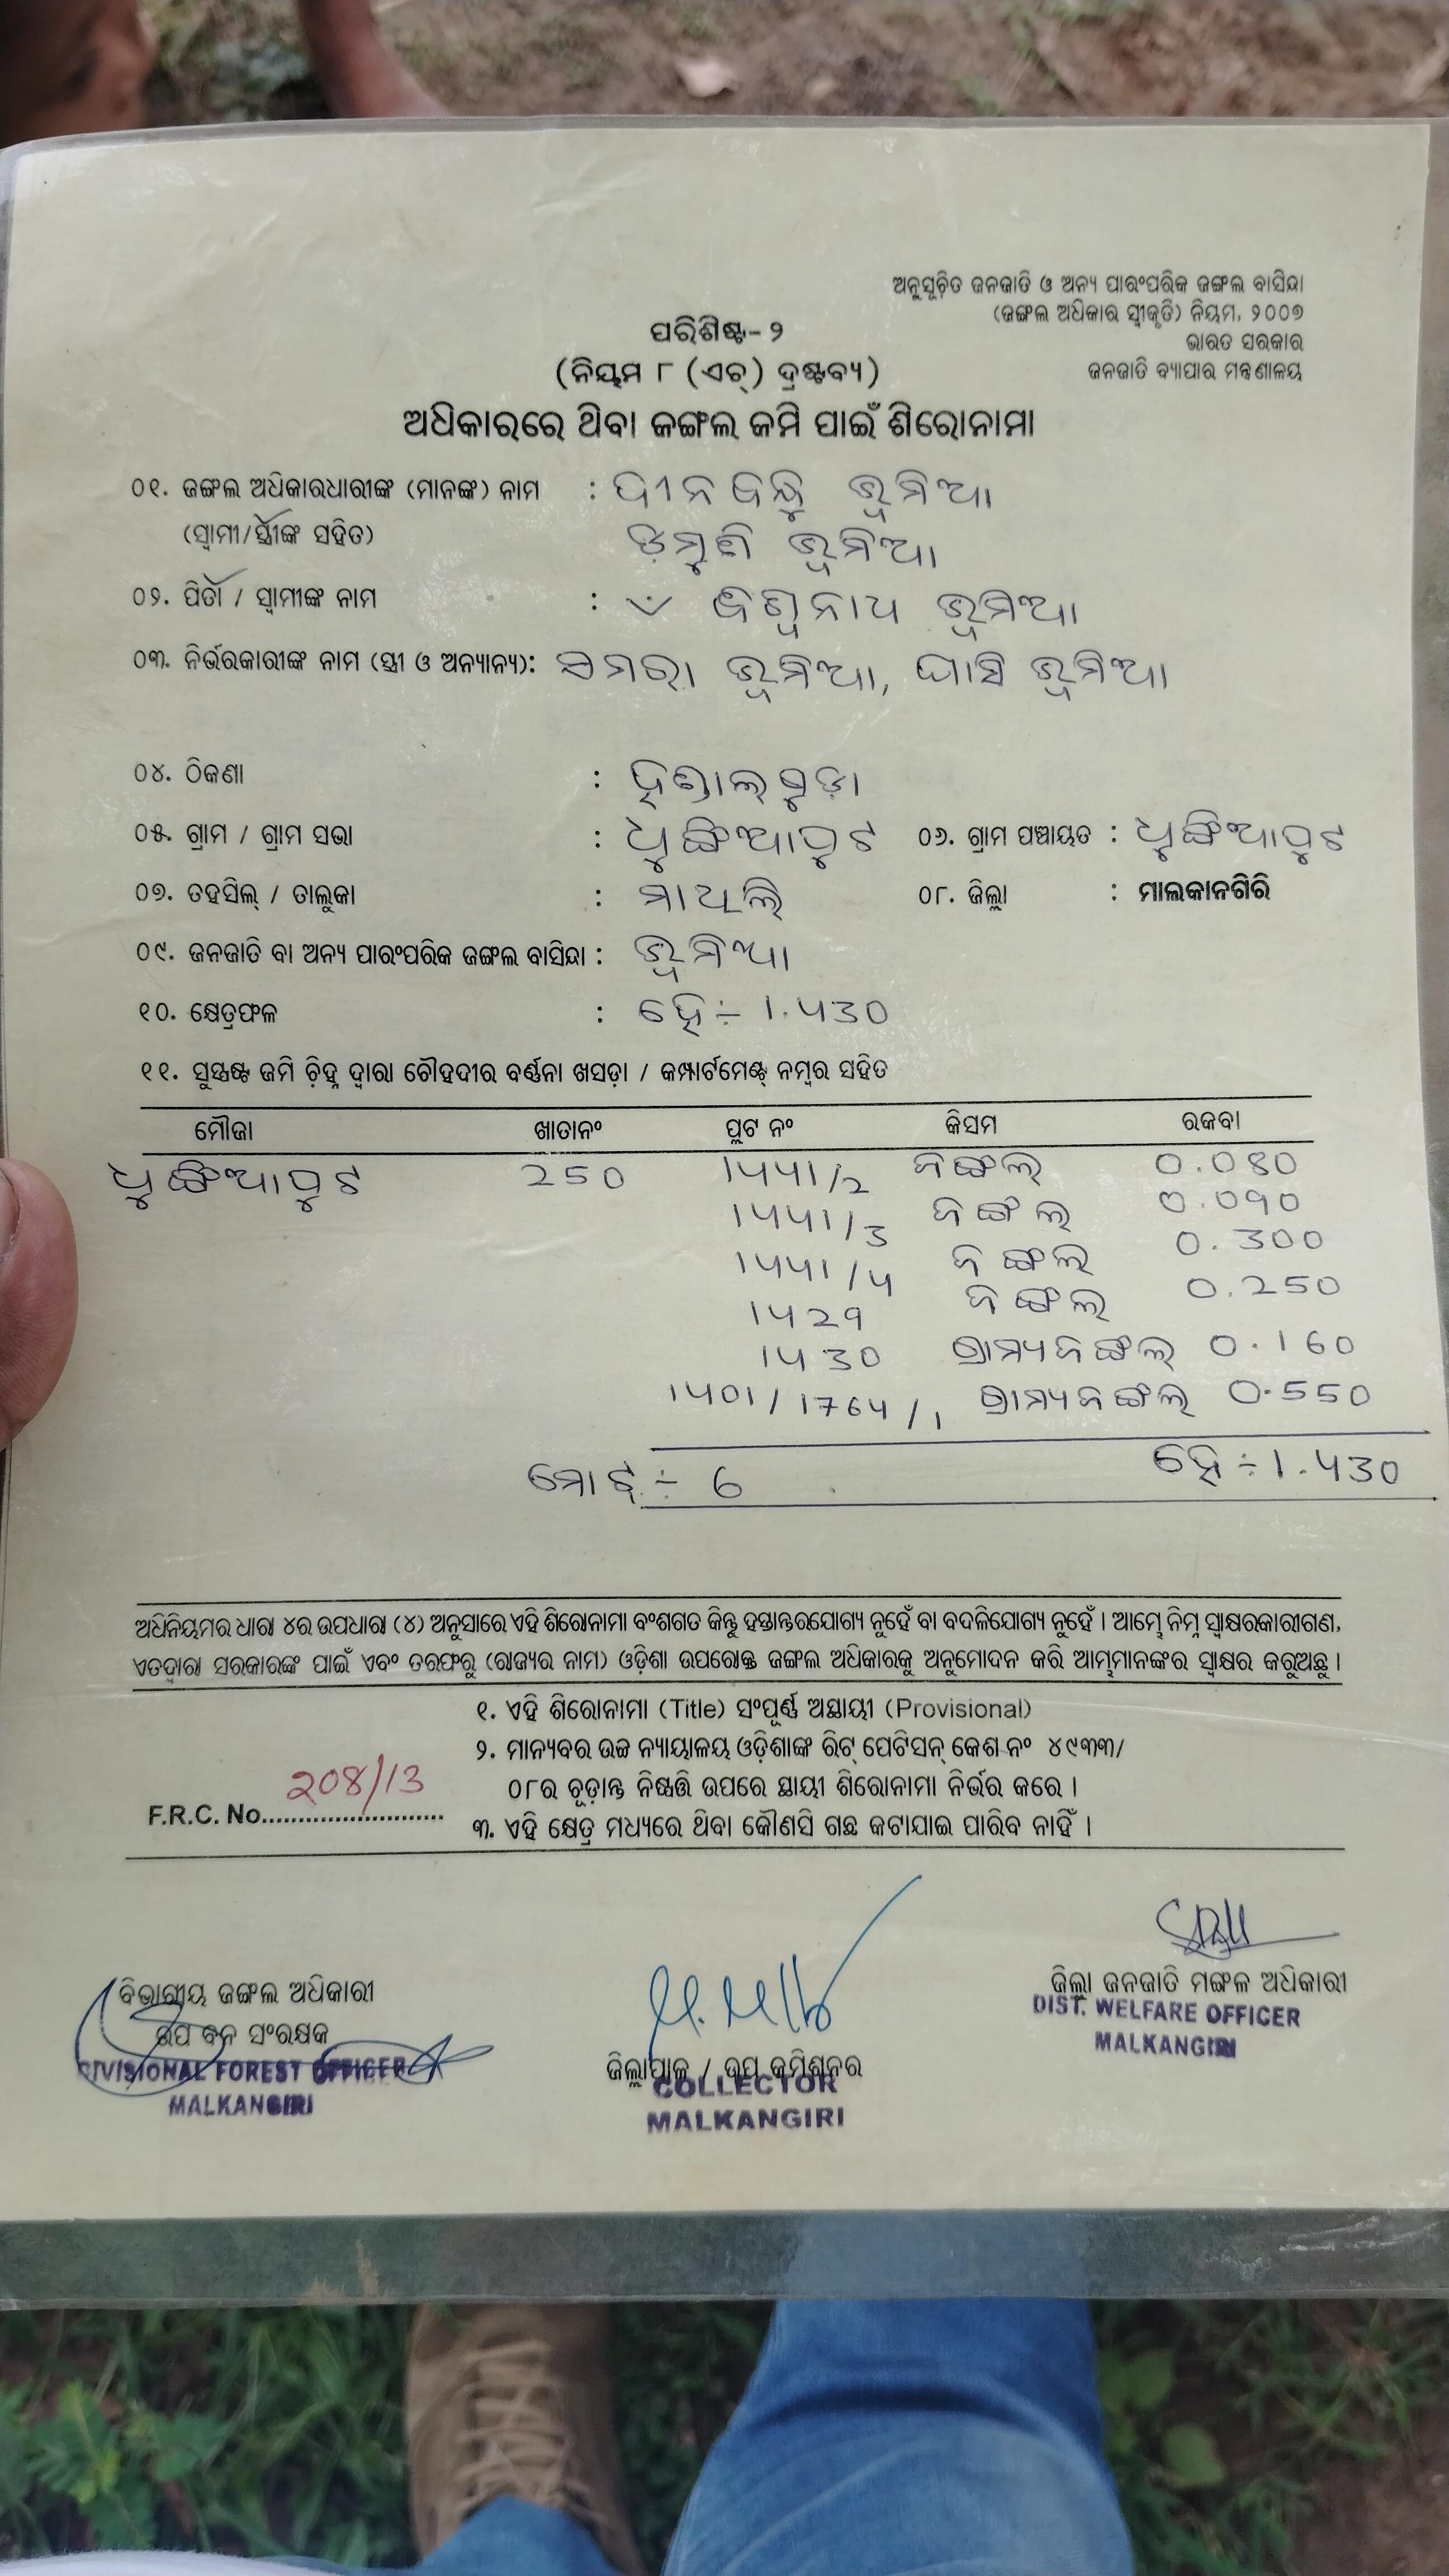 ଅନୁସୂଚିତ ଜନଜାତି ଓ ଅନ୍ୟ ପାରଂପରିକ ଜଙ୍ଗଲ ବାସିନ୍ଦା
(ଜଙ୍ଗଲ ଅଧିକାର ସ୍ୱୀକୃତି) ନିୟମ, ୨୦୦୭
ଭାରତ ସରକାର
ଜନଜାତି ବ୍ୟାପାର ମନ୍ତ୍ରଣାଳୟ
ପରିଶିଷ୍ଟ- ୨
(ନିୟମ ୮ (ଏଚ୍) ଦ୍ରଷ୍ଟବ୍ୟ)
ଅଧିକାରରେ ଥିବା ଜଙ୍ଗଲ ଜମି ପାଇଁ ଶିରୋନାମା
୦୧. ଜଙ୍ଗଲ ଅଧିକାରଧାରୀଙ୍କ (ମାନଙ୍କ) ନାମ : ଦୀନବନ୍ଧୁ ଭୂମିଆ
(ସ୍ୱାମୀ/ସ୍ତ୍ରୀଙ୍କ ସହିତ) ଭୂମିଆ
୦୨. ପିତା / ସ୍ୱାମୀଙ୍କ ନାମ : ଭୂମିଆ
୦୩. ନିର୍ଭରକାରୀଙ୍କ ନାମ (ସ୍ତ୍ରୀ ଓ ଅନ୍ୟାନ୍ୟ): ସମରା ଭୂମିଆ, ଘାସି ଭୂମିଆ
୦୪. ଠିକଣା :
୦୫. ଗ୍ରାମ / ଗ୍ରାମ ସଭା : ଧୁଙ୍ଗିଆପୁଟ ୦୬. ଗ୍ରାମ ପଞ୍ଚାୟତ : ଧୁଙ୍ଗିଆପୁଟ
୦୭. ତହସିଲ୍ / ତାଲୁକା : ମାଥିଲି ୦୮. ଜିଲ୍ଲା : ମାଲକାନଗିରି
୦୯. ଜନଜାତି ବା ଅନ୍ୟ ପାରଂପରିକ ଜଙ୍ଗଲ ବାସିନ୍ଦା : ଭୂମିଆ
୧୦. କ୍ଷେତ୍ରଫଳ : ହେ÷ 1.430
୧୧. ସୁସ୍ପଷ୍ଟ ଜମି ଚିହ୍ନ ଦ୍ୱାରା ଚୌହଦୀର ବର୍ଣ୍ଣନା ଖସଡ଼ା / କମ୍ପାର୍ଟମେଣ୍ଟ୍ ନମ୍ବର ସହିତ
ମୌଜା ଖାତାନଂ ପ୍ଲଟ ନଂ କିସମ ରକବା
ଧୁଙ୍ଗିଆପୁଟ 250 1441/2 ଜଙ୍ଗଲ 0.080
1441/3 ଜଙ୍ଗଲ 0.090
1441/4 ଜଙ୍ଗଲ 0.300
1429 ଜଙ୍ଗଲ 0.250
1430 ଗ୍ରାମ୍ୟଜଙ୍ଗଲ୍ 0.160
1401/1764/1 ଗ୍ରାମ୍ୟଜଙ୍ଗଲ୍ 0.550
ମୋଟ୍ ÷ 6 ହେ÷1.430
ଅଧିନିୟମର ଧାରା ୪ର ଉପଧାରା (୪) ଅନୁସାରେ ଏହି ଶିରୋନାମା ବଂଶଗତ କିନ୍ତୁ ହସ୍ତାନ୍ତରଯୋଗ୍ୟ ନୁହେଁ ବା ବଦଳିଯୋଗ୍ୟ ନୁହେଁ । ଆମ୍ଭେ ନିମ୍ନ ସ୍ୱାକ୍ଷରକାରୀଗଣ,
ଏତଦ୍ୱାରା ସରକାରଙ୍କ ପାଇଁ ଏବଂ ତରଫରୁ (ରାଜ୍ୟର ନାମ) ଓଡ଼ିଶା ଉପରୋକ୍ତ ଜଙ୍ଗଲ ଅଧିକାରକୁ ଅନୁମୋଦନ କରି ଆମ୍ଭମାନଙ୍କର ସ୍ୱାକ୍ଷର କରୁଅଛୁ ।
୧. ଏହି ଶିରୋନାମା (Title) ସଂପୂର୍ଣ୍ଣ ଅସ୍ଥାୟୀ (Provisional)
୨. ମାନ୍ୟବର ଉଚ୍ଚ ନ୍ୟାୟାଳୟ ଓଡ଼ିଶାଙ୍କ ରିଟ୍ ପେଟିସନ୍ କେଶ ନଂ ୪୯୩୩/
୦୮ର ଚୂଡ଼ାନ୍ତ ନିଷ୍ପତ୍ତି ଉପରେ ସ୍ଥାୟୀ ଶିରୋନାମା ନିର୍ଭର କରେ ।
F.R.C. No. 208/13
୩. ଏହି କ୍ଷେତ୍ର ମଧ୍ୟରେ ଥିବା କୌଣସି ଗଛ କଟାଯାଇ ପାରିବ ନାହିଁ ।
ବିଭାଗୀୟ ଜଙ୍ଗଲ ଅଧିକାରୀ
ଉପ ବନ ସଂରକ୍ଷକ
DIVISIONAL FOREST OFFICER
MALKANGIRI
ଜିଲ୍ଲାପାଳ / ଉପ କମିଶନର
COLLECTOR
MALKANGIRI
ଜିଲ୍ଲା ଜନଜାତି ମଙ୍ଗଳ ଅଧିକାରୀ
DIST. WELFARE OFFICER
MALKANGIRI